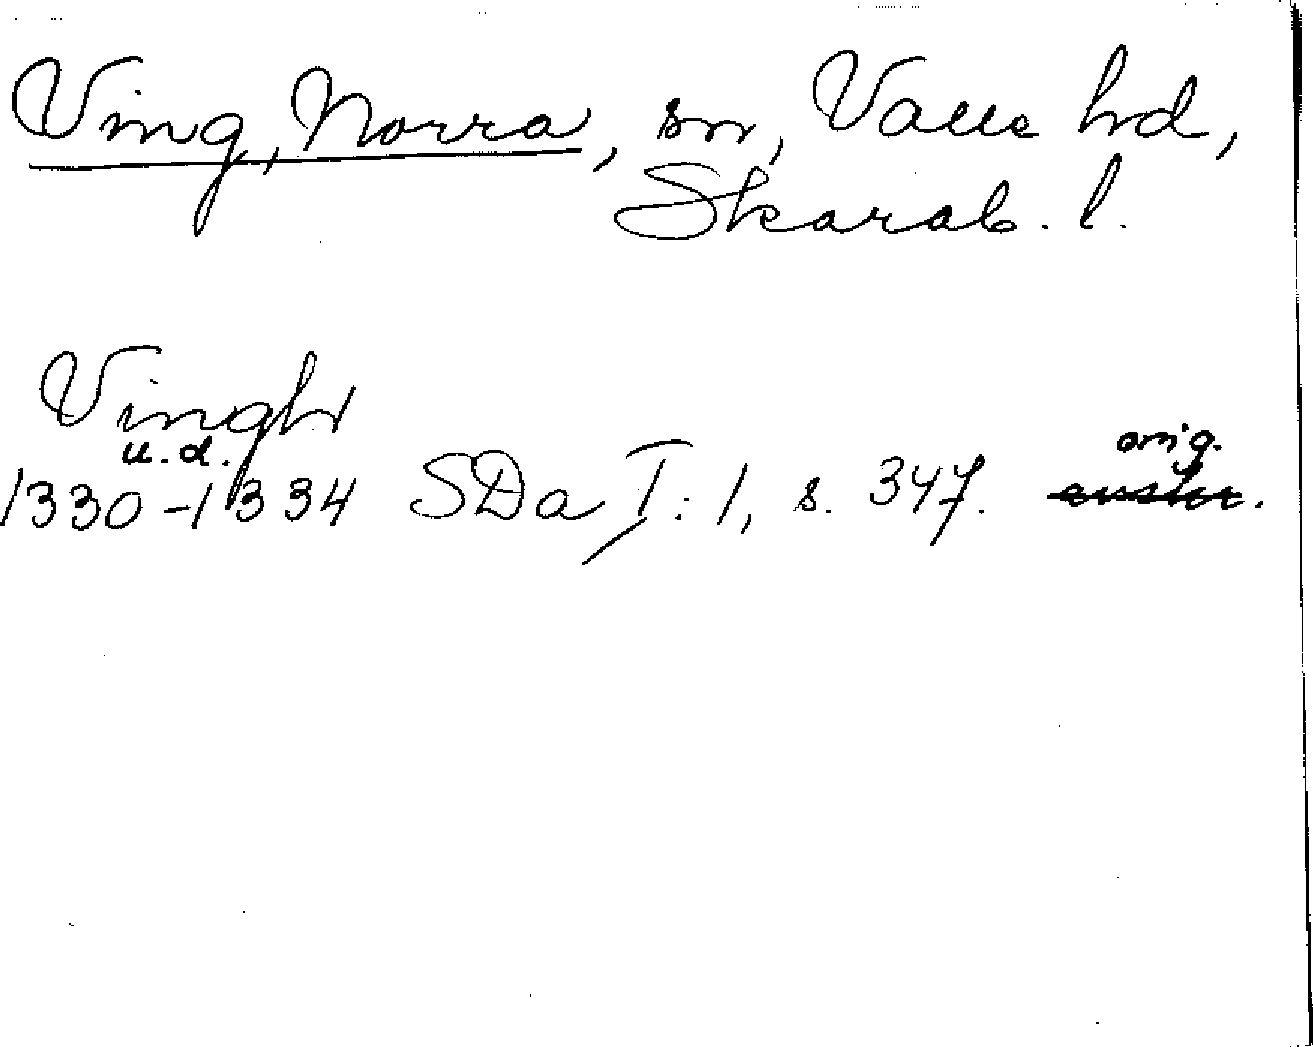 Ving, Norra, sn, Valle hd,
Skarab. l.
Vingh
u.d.
1330-1334 SDa I:1, s. 347. orig.